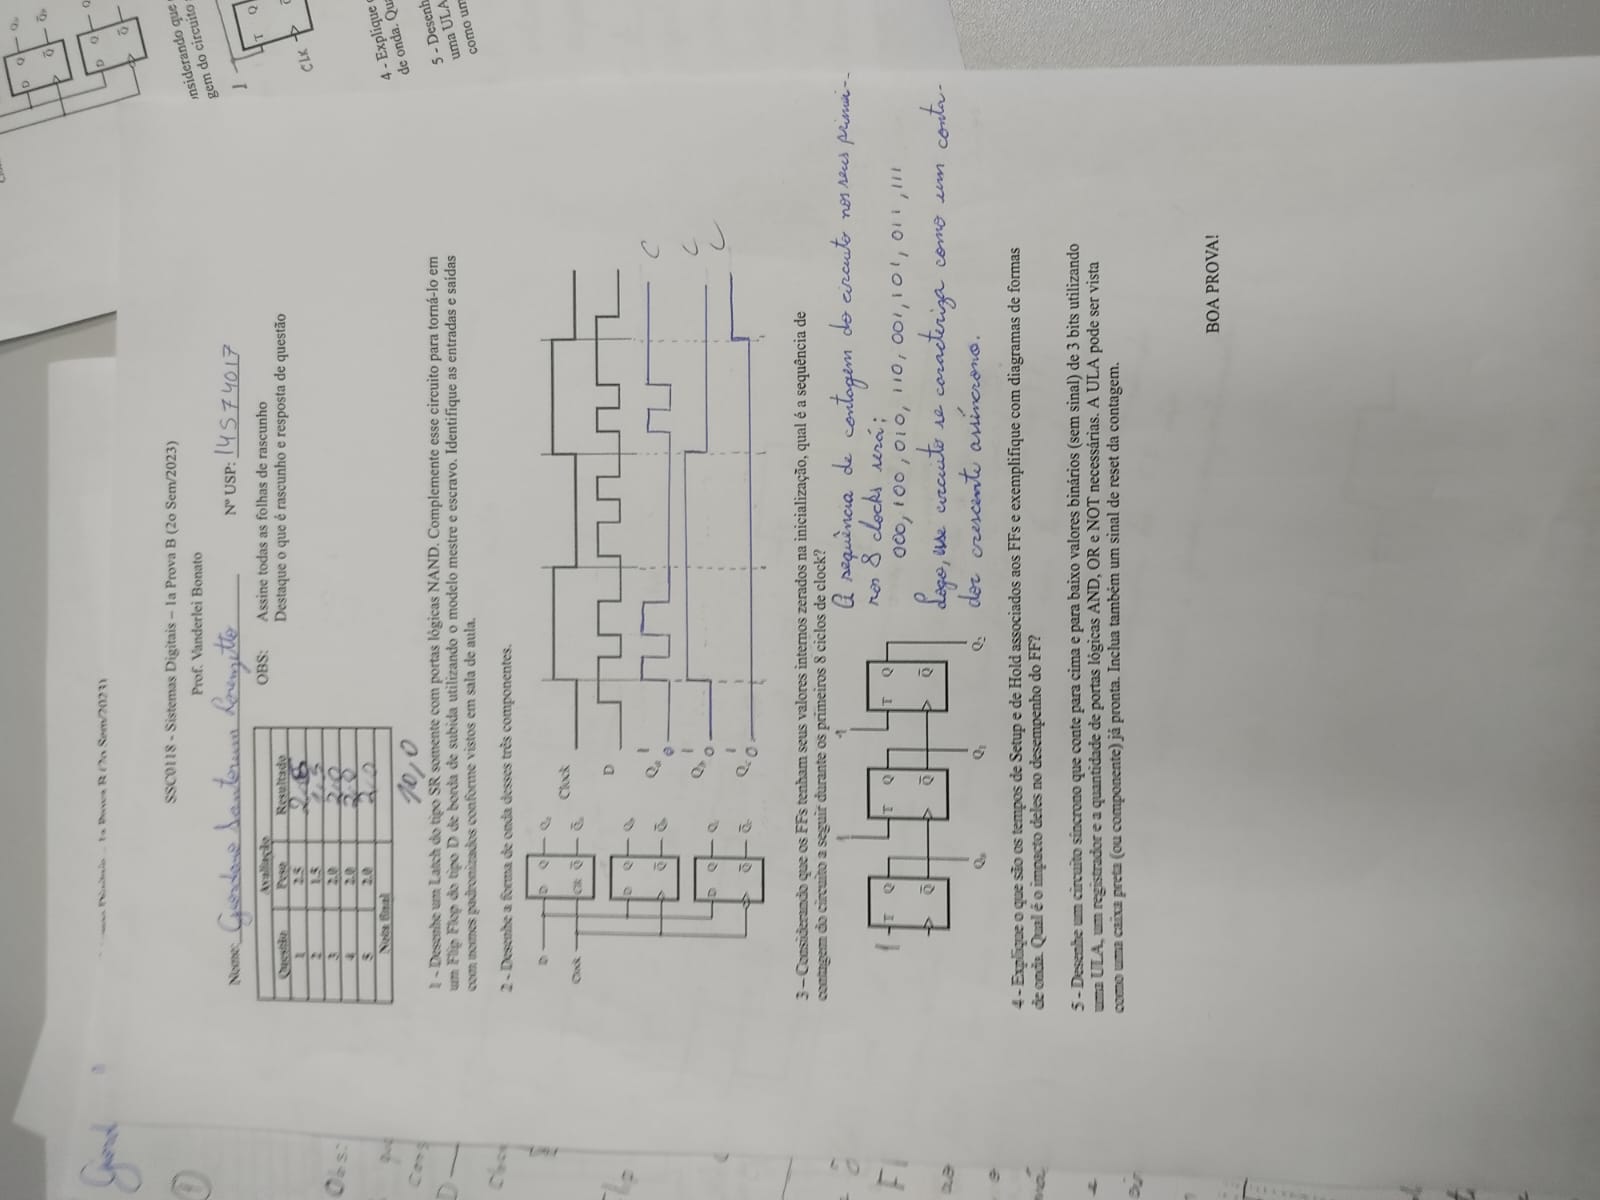 SSC0118 - Sistemas Digitais – 1a Prova B (2o Sem/2023)
Prof. Vanderlei Bonato
Nome: Giordano Santorum Lorenzetto Nº USP: 14574017
Avaliação
Questão Peso Resultado
1 2.5
2 1.5
3 2.0 2,0
4 2.0 2,0
5 2.0 2,0
Nota final 10,0
OBS: Assine todas as folhas de rascunho
Destaque o que é rascunho e resposta de questão
1 - Desenhe um Latch do tipo SR somente com portas lógicas NAND. Complemente esse circuito para torná-lo em
um Flip Flop do tipo D de borda de subida utilizando o modelo mestre e escravo. Identifique as entradas e saídas
com nomes padronizados conforme vistos em sala de aula.
2 - Desenhe a forma de onda desses três componentes.
D
Clock
D Q Qa
Clk Q̅ Q̅a
D Q Qb
Q̅ Q̅b
D Q Qc
Q̅ Q̅c
Clock
D
Qa 1 0 C
Qb 1 0 C
Qc 1 0 C
3 – Considerando que os FFs tenham seus valores internos zerados na inicialização, qual é a sequência de
contagem do circuito a seguir durante os primeiros 8 ciclos de clock?
1 T Q Q̅
1 T Q Q̅
1 T Q Q̅
Q0 Q1 Q2
A sequência de contagem do circuito nos seus primei-
ros 8 clocks será:
000, 100, 010, 110, 001, 101, 011, 111
Logo, esse circuito se caracteriza como um conta-
dor crescente assíncrono.
4 - Explique o que são os tempos de Setup e de Hold associados aos FFs e exemplifique com diagramas de formas
de onda. Qual é o impacto deles no desempenho do FF?
5 - Desenhe um circuito síncrono que conte para cima e para baixo valores binários (sem sinal) de 3 bits utilizando
uma ULA, um registrador e a quantidade de portas lógicas AND, OR e NOT necessárias. A ULA pode ser vista
como uma caixa preta (ou componente) já pronta. Inclua também um sinal de reset da contagem.
BOA PROVA!
nsiderando que
gem do circuito
1 T Q
CLK
4 - Explique
de onda. Qu
5 - Desenh
uma ULA
como um
D Q Q̅
D Q Q̅
1a Prova B (2o Sem/2023)
Giord
1
Obs:
D